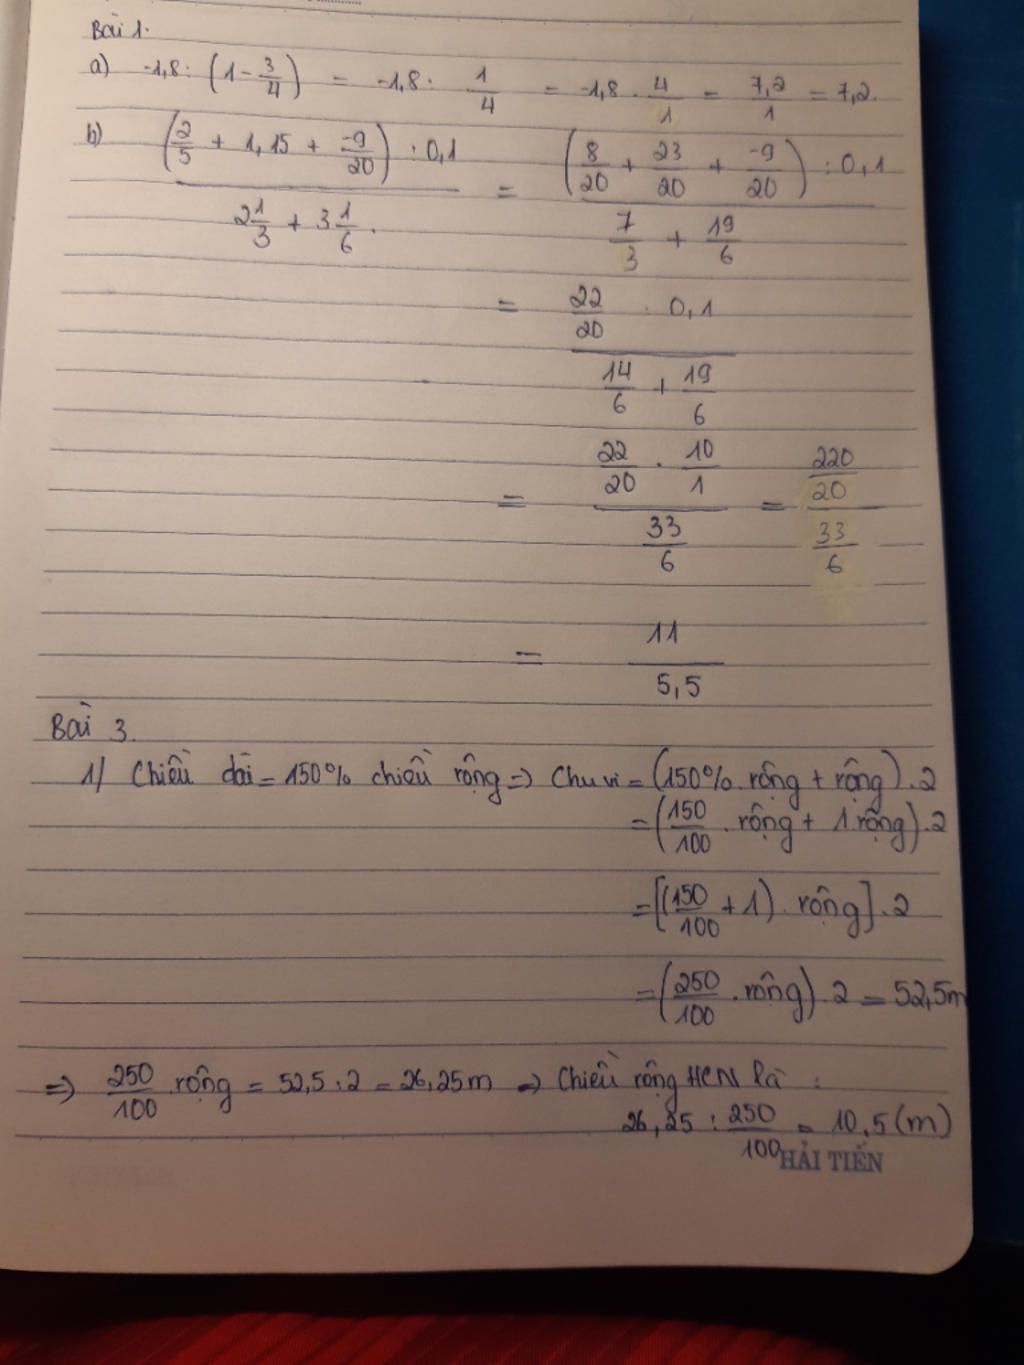 Bài 1.
a) -1,8 : (1 - 3/4) = -1,8 : 1/4 = -1,8 . 4/1 = 7,2/1 = 7,2.
b) (2/5 + 1,15 + -9/20) : 0,1 / 2 1/3 + 3 1/6 . = (8/20 + 23/20 + -9/20) : 0,1 / 7/3 + 19/6
= 22/20 : 0,1 / 14/6 + 19/6
= 22/20 . 10/1 / 33/6 = 220/20 / 33/6
= 11 / 5,5
Bài 3.
1/ Chiều dài = 150% chiều rộng => Chu vi = (150% . rộng + rộng) . 2
= (150/100 . rộng + 1 rộng) . 2
= [(150/100 + 1) . rộng] . 2
= (250/100 . rộng) . 2 = 52,5m
=> 250/100 rộng = 52,5 : 2 = 26,25m => Chiều rộng HCN là :
26,25 : 250/100 = 10,5 (m)
HẢI TIẾN